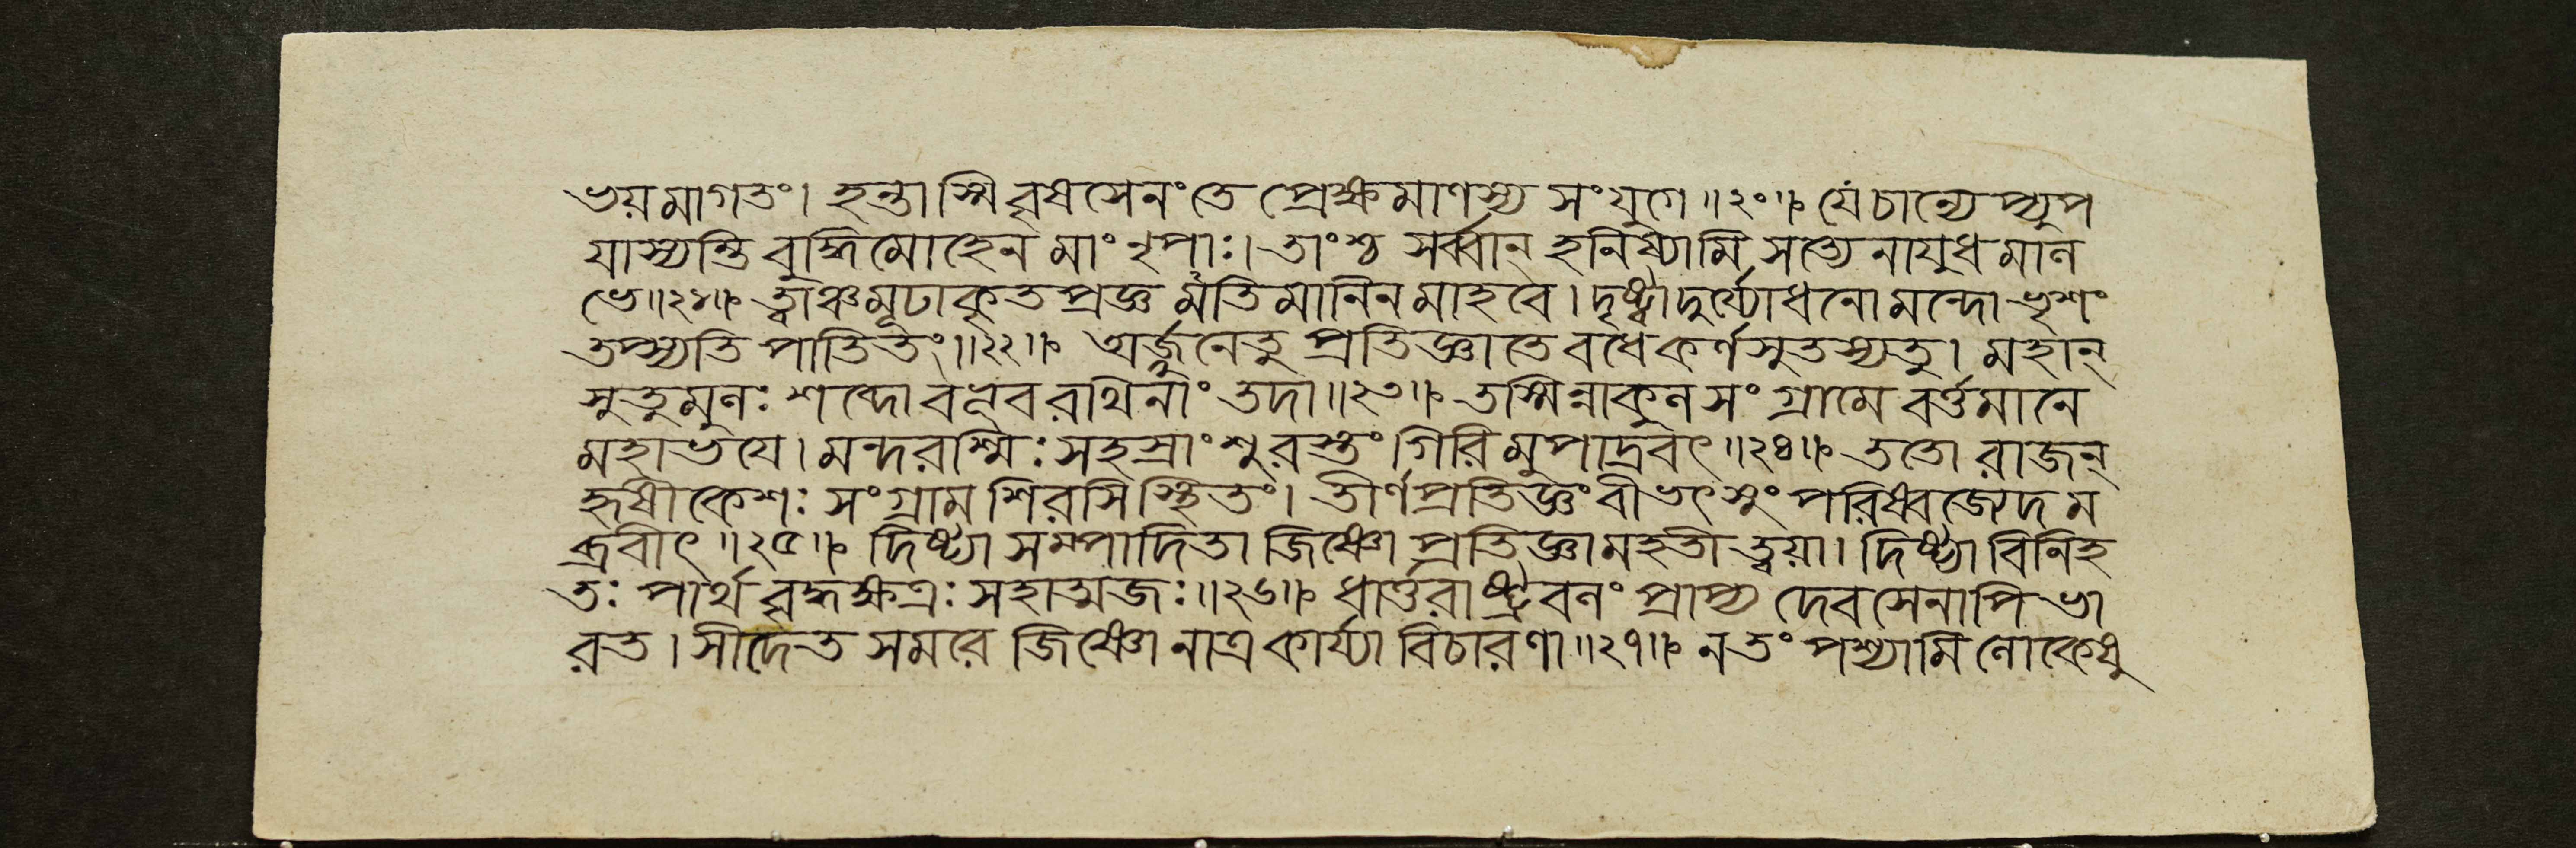 ভয়মাগতং। হন্তাস্মি বৃষসেনং তে প্রেক্ষমাণস্য সংযুগে॥২০॥ যে চান্যেপ্যুপ
যাস্যন্তি বুদ্ধিমোহেন মাং নৃপাঃ। তাংশ্চ সর্ব্বান্ হনিষ্যামি সত্যেনায়ুধমাল
ভে॥২১॥ ত্বাঞ্চ মূঢাকৃতপ্রজ্ঞমতিমানিনমাহবে। দৃষ্ট্বা দুর্য্যোধনো মন্দো ভৃশং
তপ্স্যতি পাতিতং॥২২॥ অর্জ্জুনেতু প্রতিজ্ঞাতে বধে কর্ণসুতস্যতু। মহান্
সুতুমুলঃ শব্দো বভূব রথিনাং তদা॥২৩॥ তস্মিন্নাকুল সংগ্রামে বর্ত্তমানে
মহাভয়ে। মন্দরশ্মিঃ সহস্রাংশুরস্তং গিরিমুপাদ্রবৎ॥২৪॥ ততো রাজন্
হৃষীকেশঃ সংগ্রামশিরসি স্থিতং। তীর্ণপ্রতিজ্ঞং বীভৎসুং পরিষ্বজ্যেদম
ব্রবীৎ॥২৫॥ দিষ্ট্যা সম্পাদিতা জিষ্ণো প্রতিজ্ঞা মহতী ত্বয়া। দিষ্ট্যা বিনিহ
তঃ পার্থ বৃদ্ধক্ষত্রঃ সহাত্মজঃ॥২৬॥ ধার্ত্তরাষ্ট্রবলং প্রাপ্য দেবসেনাপি ভা
রত। সীদেত সমরে জিষ্ণো নাত্র কার্য্যা বিচারণা॥২৭॥ ন তং পশ্যামি লোকেষু